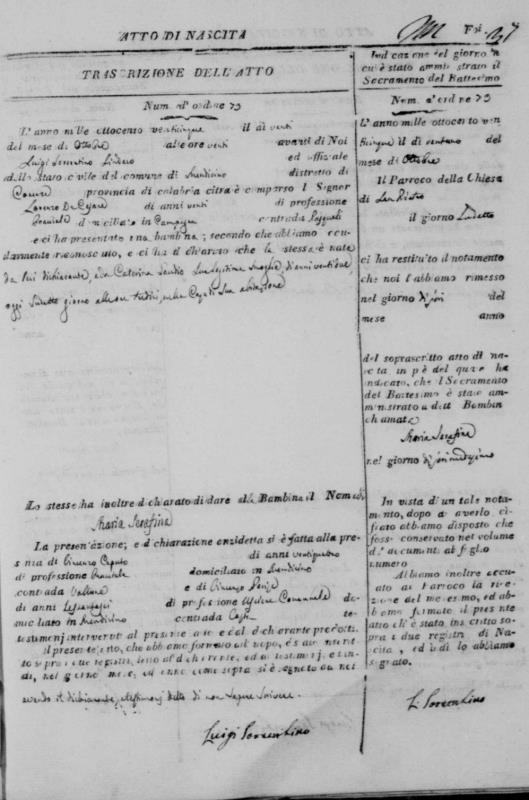 ATTO DI NASCITA
TRASCRIZIONE DELL'ATTO
Num. d'ordine 73
L'anno mille ottocento venticinque il dì venti
del mese di Ottobre alle ore venti avanti di Noi
Luigi Sorrentino Sindaco ed uffiziale
dello Stato civile del comune di Mendicino distretto di
Cosenza provincia di calabria citra è comparso il Signor
Lorenzo De Cesare di anni venti di professione
Bracciale domiciliato in Campagna contrada
e ci ha presentato una bambina; secondo che abbiamo ocu-
larmente riconosciuto, e ci ha dichiarato che la stessa è nata
da lui dichiarante, e da Caterina sua legittima moglie di anni ventidue,
oggi sudetto giorno alle ore tredici, nella Casa di Sua abitazione
Lo stesso ha inoltre dichiarato di dare alla Bambina il Nome di
Maria Serafina
La presentazione, e dichiarazione anzidetta si è fatta alla pre-
senza di Vincenzo Caputo di anni ventiquattro
di professione Bracciale domiciliato in Mendicino
contrada e di Vincenzo
di anni di professione Usciere Comunale do-
miciliato in Mendicino contrada te-
testimonj intervenuti al presente atto e dal dichiarante prodotti.
Il presente atto, che abbiamo formato all'uopo, è stato inscrit-
to sopra i due registri, letto al dichiarante, ed ai testimonj, e in-
di, nel giorno mese, ed anno come sopra si è segnato da noi
avendo il dichiarante, e testimonj detto di non sapere scrivere.
Luigi Sorrentino
Indicazione del giorno in
cui è stato amministrato il
Sacramento del Battesimo
Num. d'ordine 73
L'anno mille ottocento ven
ticinque il dì ventuno del
mese di Ottobre
Il Parroco della Chiesa
di San Pietro
il giorno sudetto
ci ha restituito il notamento
che noi l'abbiamo rimesso
nel giorno del
mese anno
del soprascritto atto di na-
scita in piè del quale ha
indicato, che l Sacramento
del Battesimo è stato am-
ministrato a dett Bambin
chiamata
Maria Serafina
nel giorno
In vista di un tale nota-
mento, dopo d'averlo ci-
frato abbiamo disposto che
fosse conservato nel volume
d' documenti al foglio
numero
Abbiamo inoltre accu-
sato al Parroco la rice-
zione del medesimo, ed ab-
biamo formato il presente
atto ch'è stato inscritto so-
pra i due registri di Na-
scita, ed indi lo abbiamo
segnato.
L. Sorrentino